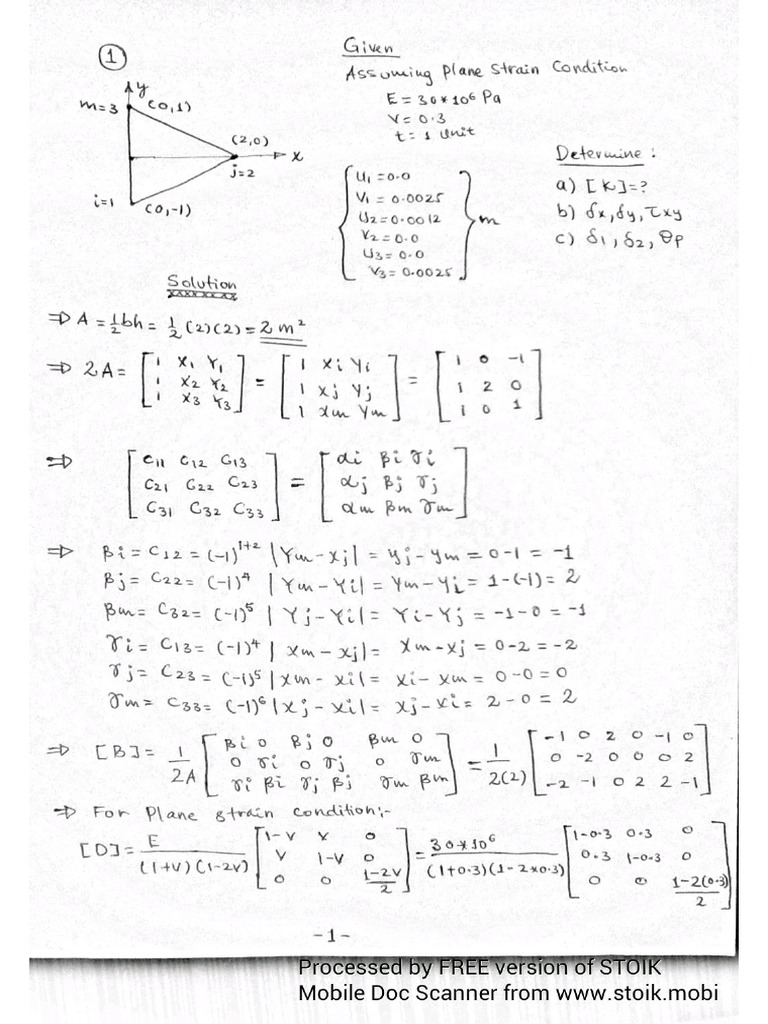 1
Given
Assuming Plane Strain Condition
E = 30*10⁶ Pa
V = 0.3
t = 1 Unit
y
m=3 (0,1)
(2,0)
x
j=2
i=1 (0,-1)
Determine :
a) [K]=?
b) δx, δy, τxy
c) δ1, δ2, θp
U1 = 0.0
V1 = 0.0025
U2 = 0.0012
V2 = 0.0
U3 = 0.0
V3 = 0.0025
m
Solution
⇒ A = 1/2 bh = 1/2 (2)(2) = 2 m²
⇒ 2A = [1 X1 Y1; 1 X2 Y2; 1 X3 Y3] = [1 xi Yi; 1 xj Yj; 1 xm Ym] = [1 0 -1; 1 2 0; 1 0 1]
⇒ [C11 C12 C13; C21 C22 C23; C31 C32 C33] = [αi βi γi; αj βj γj; αm βm γm]
⇒ βi = C12 = (-1)¹⁺² |Ym - xj| = yj - ym = 0 - 1 = -1
βj = C22 = (-1)⁴ |Ym - Yi| = Ym - Yi = 1 - (-1) = 2
βm = C32 = (-1)⁵ |Yj - Yi| = Yi - Yj = -1 - 0 = -1
γi = C13 = (-1)⁴ |xm - xj| = xm - xj = 0 - 2 = -2
γj = C23 = (-1)⁵ |xm - xi| = xi - xm = 0 - 0 = 0
γm = C33 = (-1)⁶ |xj - xi| = xj - xi = 2 - 0 = 2
⇒ [B] = 1/2A [βi 0 βj 0 βm 0; 0 γi 0 γj 0 γm; γi βi γj βj γm βm] = 1/2(2) [-1 0 2 0 -1 0; 0 -2 0 0 0 2; -2 -1 0 2 2 -1]
⇒ For Plane strain condition:-
[D] = E/(1+V)(1-2V) [1-V V 0; V 1-V 0; 0 0 1-2V/2] = 30*10⁶/(1+0.3)(1-2*0.3) [1-0.3 0.3 0; 0.3 1-0.3 0; 0 0 1-2(0.3)/2]
-1-
Processed by FREE version of STOIK
Mobile Doc Scanner from www.stoik.mobi